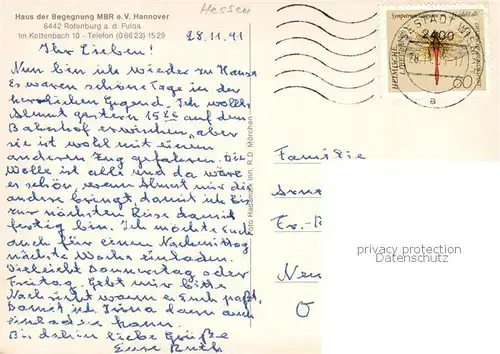 Hessen
Haus der Begegnung MBR e.V. Hannover
6442 Rotenburg a. d. Fulda
Im Kottenbach 10 – Telefon (06623) 1529
28.11.91
Ihr Lieben!
Nun bin ich wieder zu Hause
Es waren schöne Tage in der
herrlichen Gegend. Ich wollte
Almut gestern 15 auf dem
Bahnhof erwischen, aber
sie ist wohl mit einem
anderen Zug gefahren. Die
Wolle ist alle und da wäre
es schön, wenn Almut mir die
andere bringt, damit ich bis
zur nächsten Reise damit
fertig bin. Ich möchte Euch
auch für einen Nachmittag
nächste Woche einladen.
Vielleicht Donnerstag oder
Freitag. Gebt mir bitte
Nachricht wann es Euch paßt,
damit ich Irina dann auch
einladen kann.
Bis dahin liebe Grüße
Eure Ruth
Foto Habermann Inh. R. D. Mörchen
2400
60
a
Familie
Neu
O
privacy protection
ansichtskartenversand.com